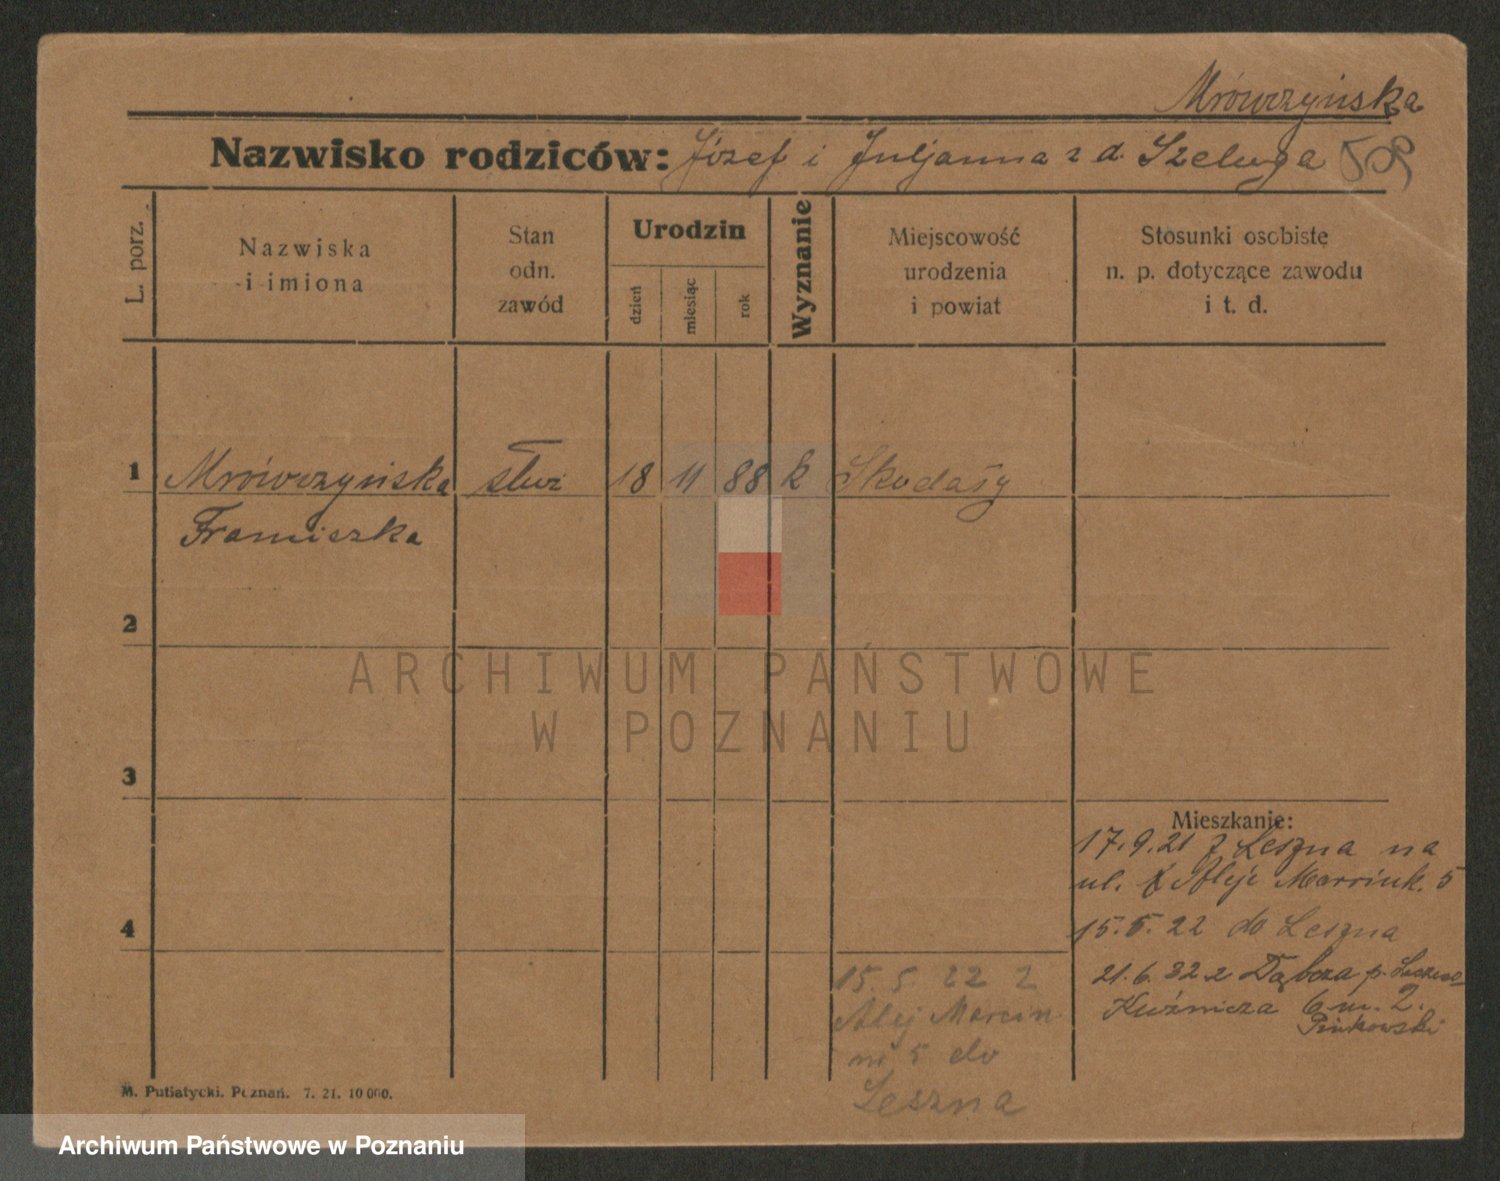 Mrówczyńska
Nazwisko rodziców: Józef i Juljanna z d. Szeluga
L. porz.
Nazwiska
i imiona
Stan
odn.
zawód
Urodzin
dzień
miesiąc
rok
Wyznanie
Miejscowość
urodzenia
i powiat
Stosunki osobiste
n. p. dotyczące zawodu
i t. d.
1 Mrówczyńska służ 18 11 88 k Skodały
Franciszka
2
ARCHIWUM PAŃSTWOWE
W POZNANIU
3
Mieszkanie:
17.9.21 z Leszna na
ul. Aleje Marcink. 5
4
15.5.22 do Leszna
21.6.32 z Dąbcza p. Leszno
Kuźnicza 6 m. 2.
Pinkowski
15.5.22 z
Alej Marcin
nr 5 do
Leszna
M. Putiatycki. Poznań. 7. 21. 10 000.
Archiwum Państwowe w Poznaniu